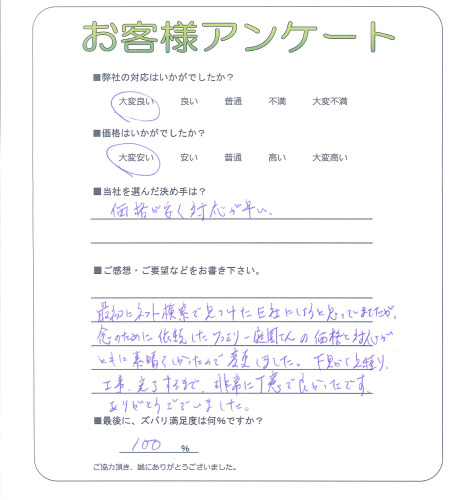 お客様アンケート
■弊社の対応はいかがでしたか？
大変良い 良い 普通 不満 大変不満
■価格はいかがでしたか？
大変安い 安い 普通 高い 大変高い
■当社を選んだ決め手は？
価格が安く対応が早い。
■ご感想・ご要望などをお書き下さい。
最初にネット検索で見つけたE社にしようと思ってましたが、
念のために依頼した ファミリー庭園さんの価格と対応が
ともに素晴らしかったので変更しました。下見から見積り、
工事、完了するまで、非常に丁寧で良かったです。
ありがとうございました。
■最後に、ズバリ満足度は何％ですか？
100 %
ご協力頂き、誠にありがとうございました。